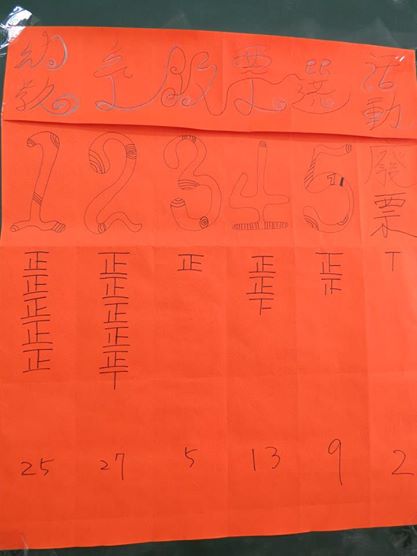 幼教系服票選活動
1 2 3 4 5 廢票
正 正 正 正 正 丅
正 正 正 止
正 正 下
正 正
正 正
丅
25 27 5 13 9 2